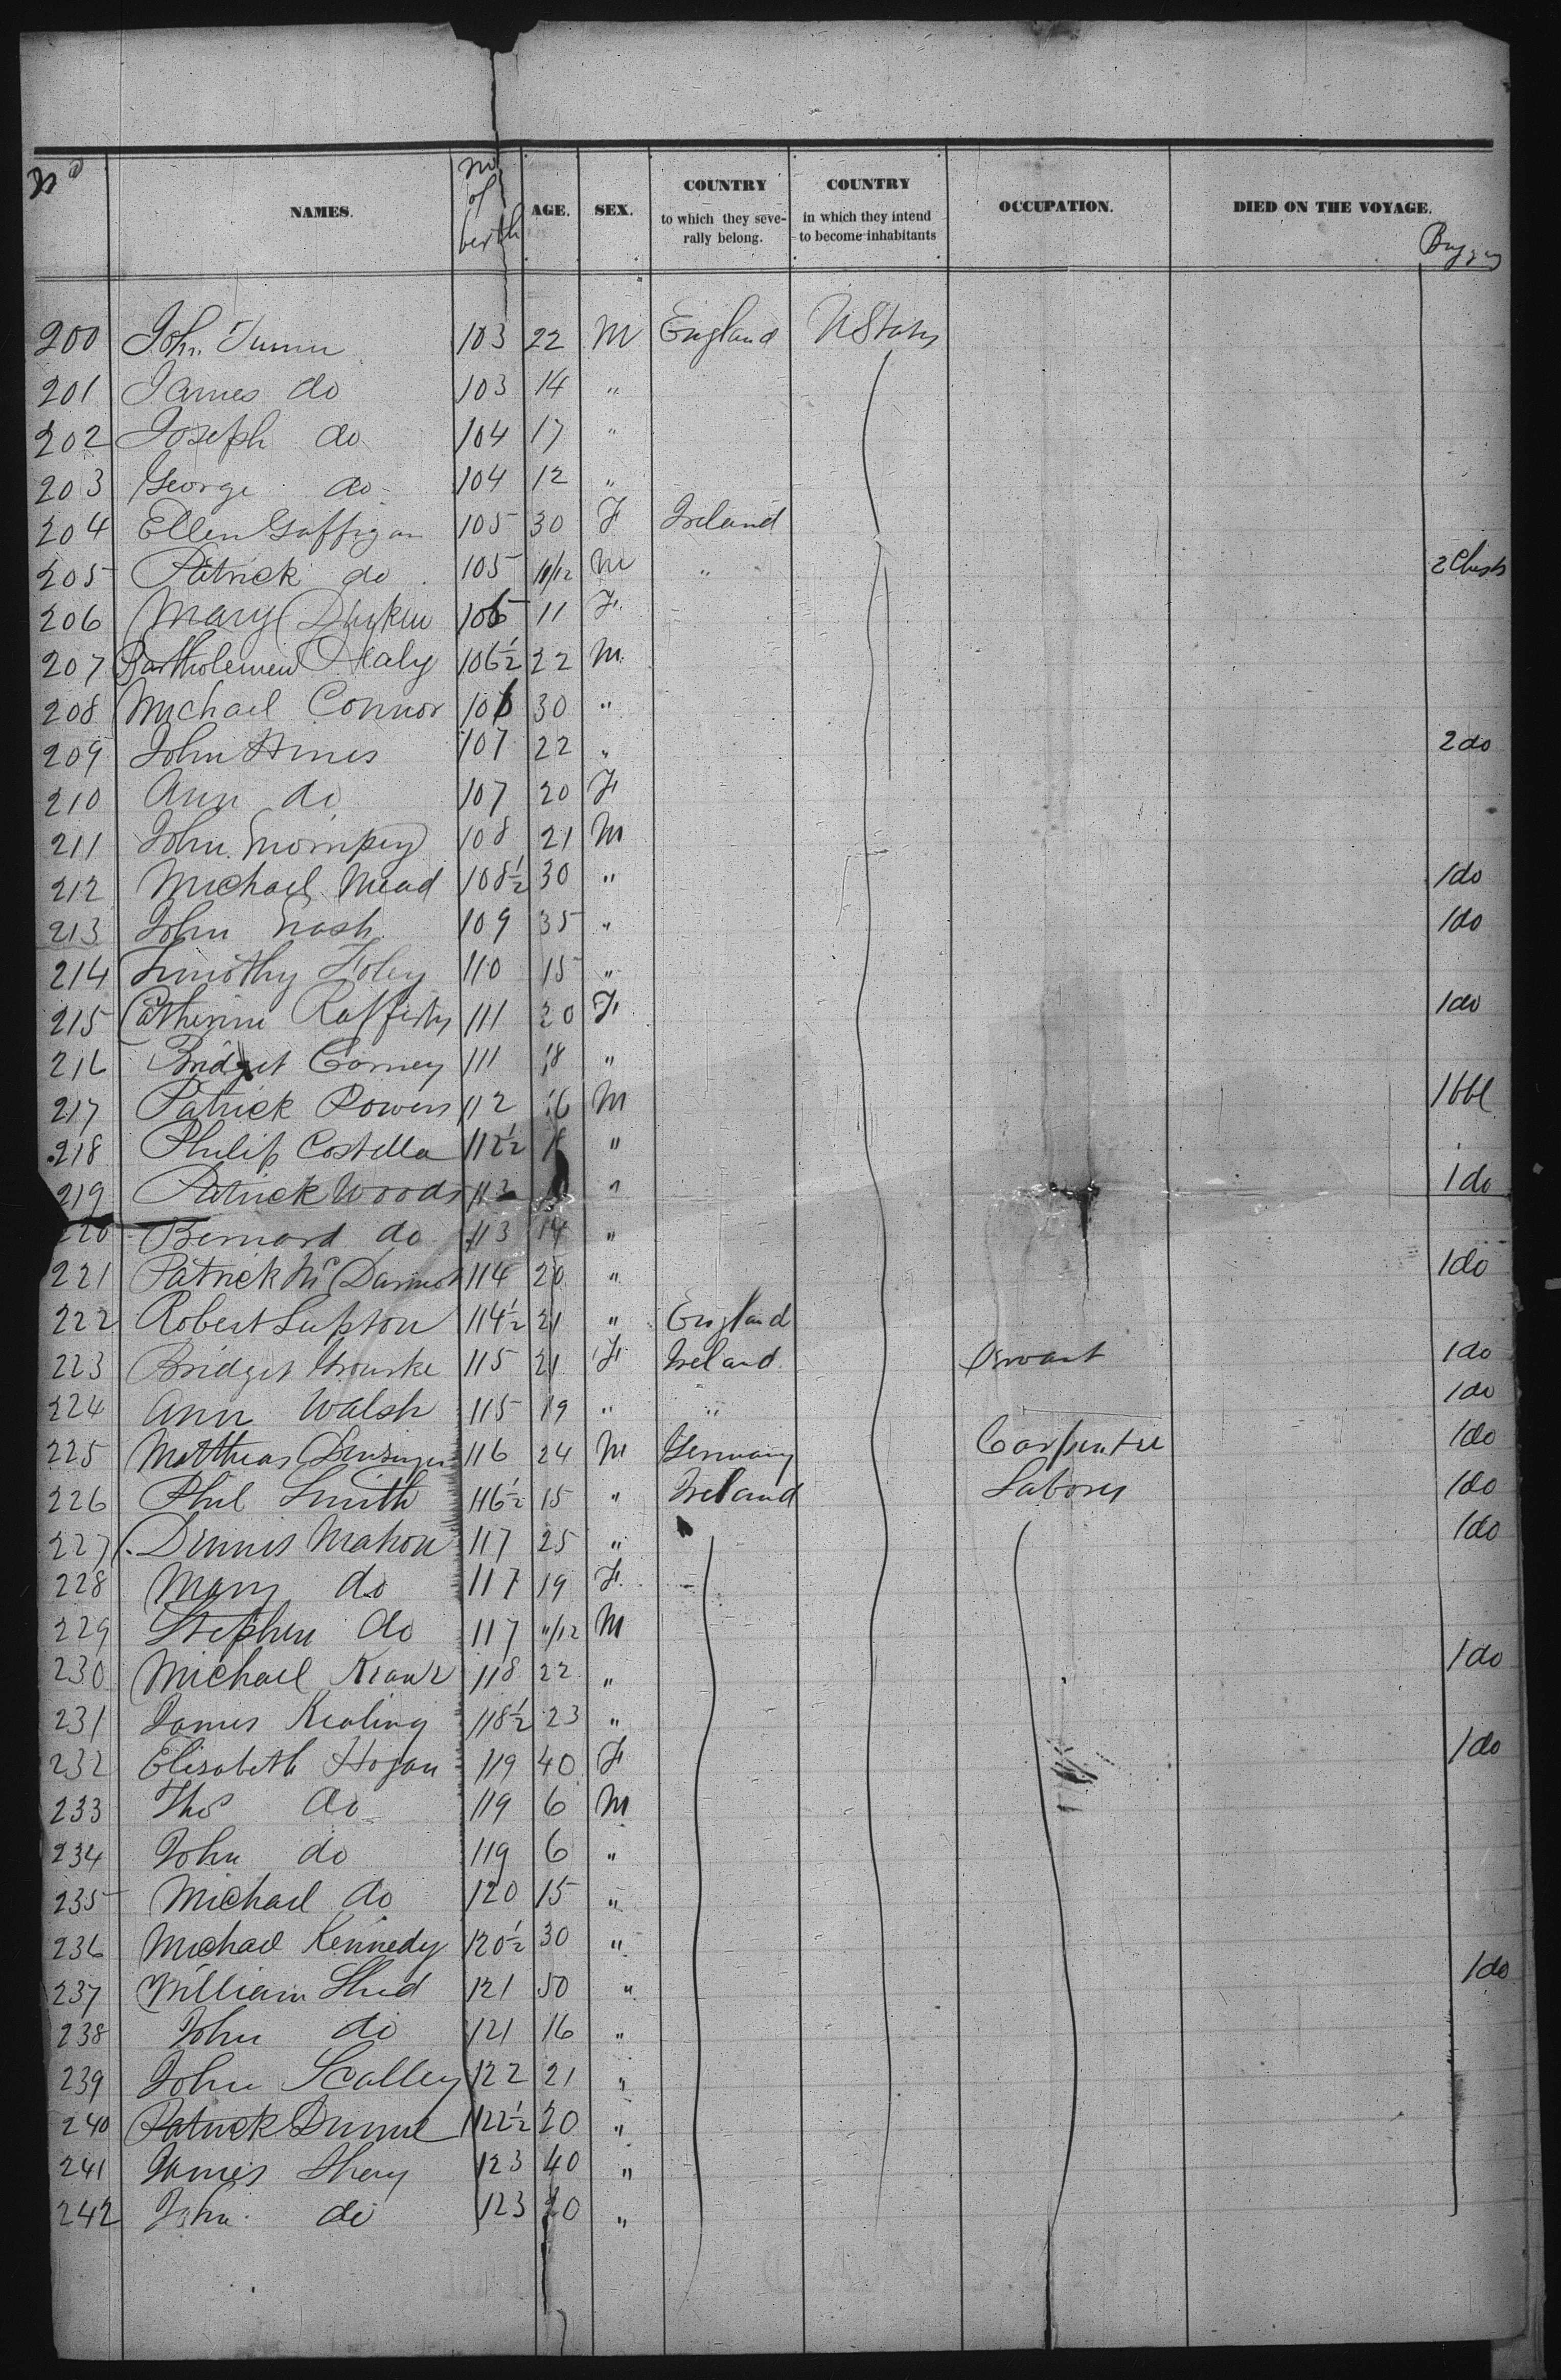 No NAMES. No of berth AGE. SEX. COUNTRY to which they severally belong. COUNTRY in which they intend to become inhabitants OCCUPATION. DIED ON THE VOYAGE.
200 John 103 22 M England UStates
201 James do 103 14 "
202 Joseph do 104 17 "
203 George do 104 12 "
204 Ellen Gaffigan 105 30 F Ireland
205 Patrick do 105 M " 2 Chests
206 Mary Durkin 106 11 F
207 Bartholemew Healy 106½ 22 M
208 Michael Connor 106 30 "
209 John Hines 107 22 " 2 do
210 Ann do 107 20 F
211 John 108 21 M
212 Michael Mead 108½ 30 " 1 do
213 John Nash 109 35 " 1 do
214 Timothy Foley 110 15 "
215 Catherine Rafferty 111 20 F 1 do
216 Bridget 111 18 "
217 Patrick Powers 112 16 M 1 bbl
218 Philip Costella 112½ "
219 Patrick Woods "
1 do
220 Bernard do 113 14 "
221 Patrick Mc Darmot 114 20 " 1 do
222 Robert Lupton 114½ 21 " England
223 Bridget 115 21 F Ireland Servant 1 do
224 Ann Walsh 115 19 " " 1 do
225 Matthias 116 24 M Germany Carpenter 1 do
226 Phil Smith 116½ 15 " Ireland Laborer 1 do
227 Dennis Mahon 117 25 " 1 do
228 Mary do 117 19 F
229 Stephen do 117 11/12 M
230 Michael 118 22 " 1 do
231 James Kealing 118½ 23 "
232 Elisabeth Hogan 119 40 F 1 do
233 Thos do 119 6 M
234 John do 119 6 "
235 Michael do 120 15 "
236 Michael Kennedy 120½ 30 "
237 William 121 50 " 1 do
238 John do 121 16 "
239 John Scalley 122 21 "
240 Patrick Dunne 122½ 20 "
241 James 123 40 "
242 John do 123 20 "